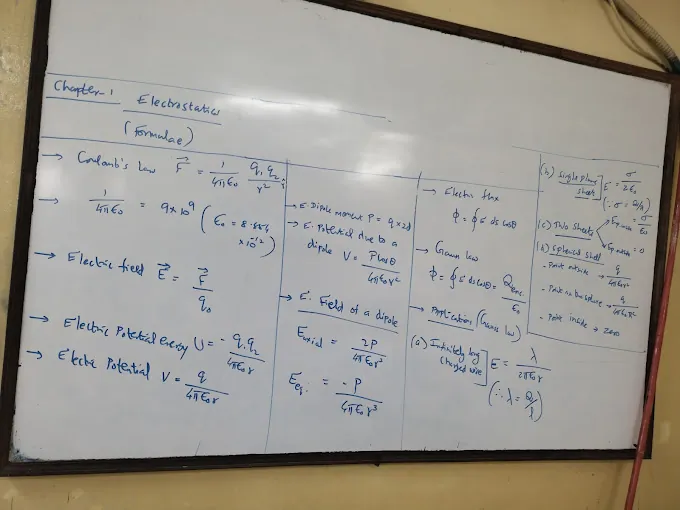 Chapter-1 Electrostatics
(Formulae)
→ Coulomb's Law F⃗ = 1/4πε₀ q₁ q₂/r²
→ 1/4πε₀ = 9×10⁹ (ε₀ = 8.854 ×10⁻¹²)
→ Electric field E⃗ = F⃗/q₀
→ Electric Potential energy U = - q₁q₂/4πε₀r
→ Electric Potential V = q/4πε₀r
→ E. Dipole moment P = q × 2d
→ E. Potential due to a
dipole V = Pcosθ/4πε₀r²
→ E. Field of a dipole
E axial = 2P/4πε₀r³
E eq. = -P/4πε₀r³
→ Electric flux
Φ = ∮ E ds cosθ
→ Gauss law
Φ = ∮ E ds cosθ = Q enc./ε₀
→ Application (Gauss law)
(a) Infinitely long
charged wire] E = λ/2πε₀r
(∴ λ = Q/l)
(b) Single plane
sheet] E = σ/2ε₀
(∵ σ = Q/A)
(c) Two sheets → = σ/ε₀
→ = 0
(d) Spherical shell
- Point outside → q/4πε₀r²
- Point on → q/4πε₀R²
- Point inside → zero